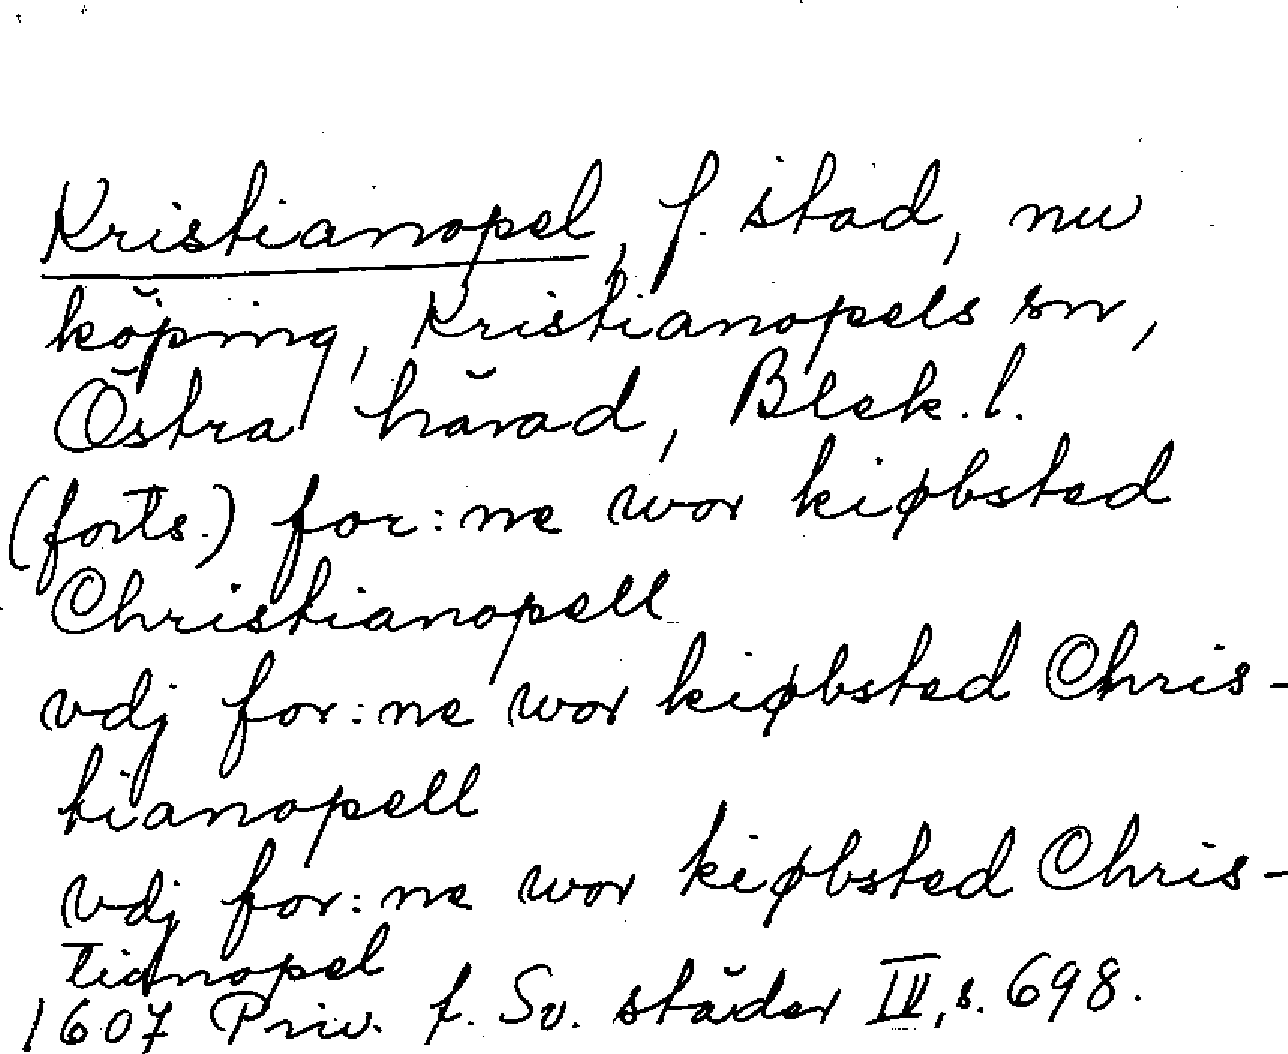 Kristianopel, f. stad, nu
köping, Kristianopels sn,
Östra härad, Blek. l.
(forts.) for:ne wor kiøbsted
Christianopell
vdj for:ne wor kiøbsted Chris-
tianopell
vdj for:ne wor kiøbsted Chris-
tianopel
1607 Priv. f. Sv. städer IV, s. 698.